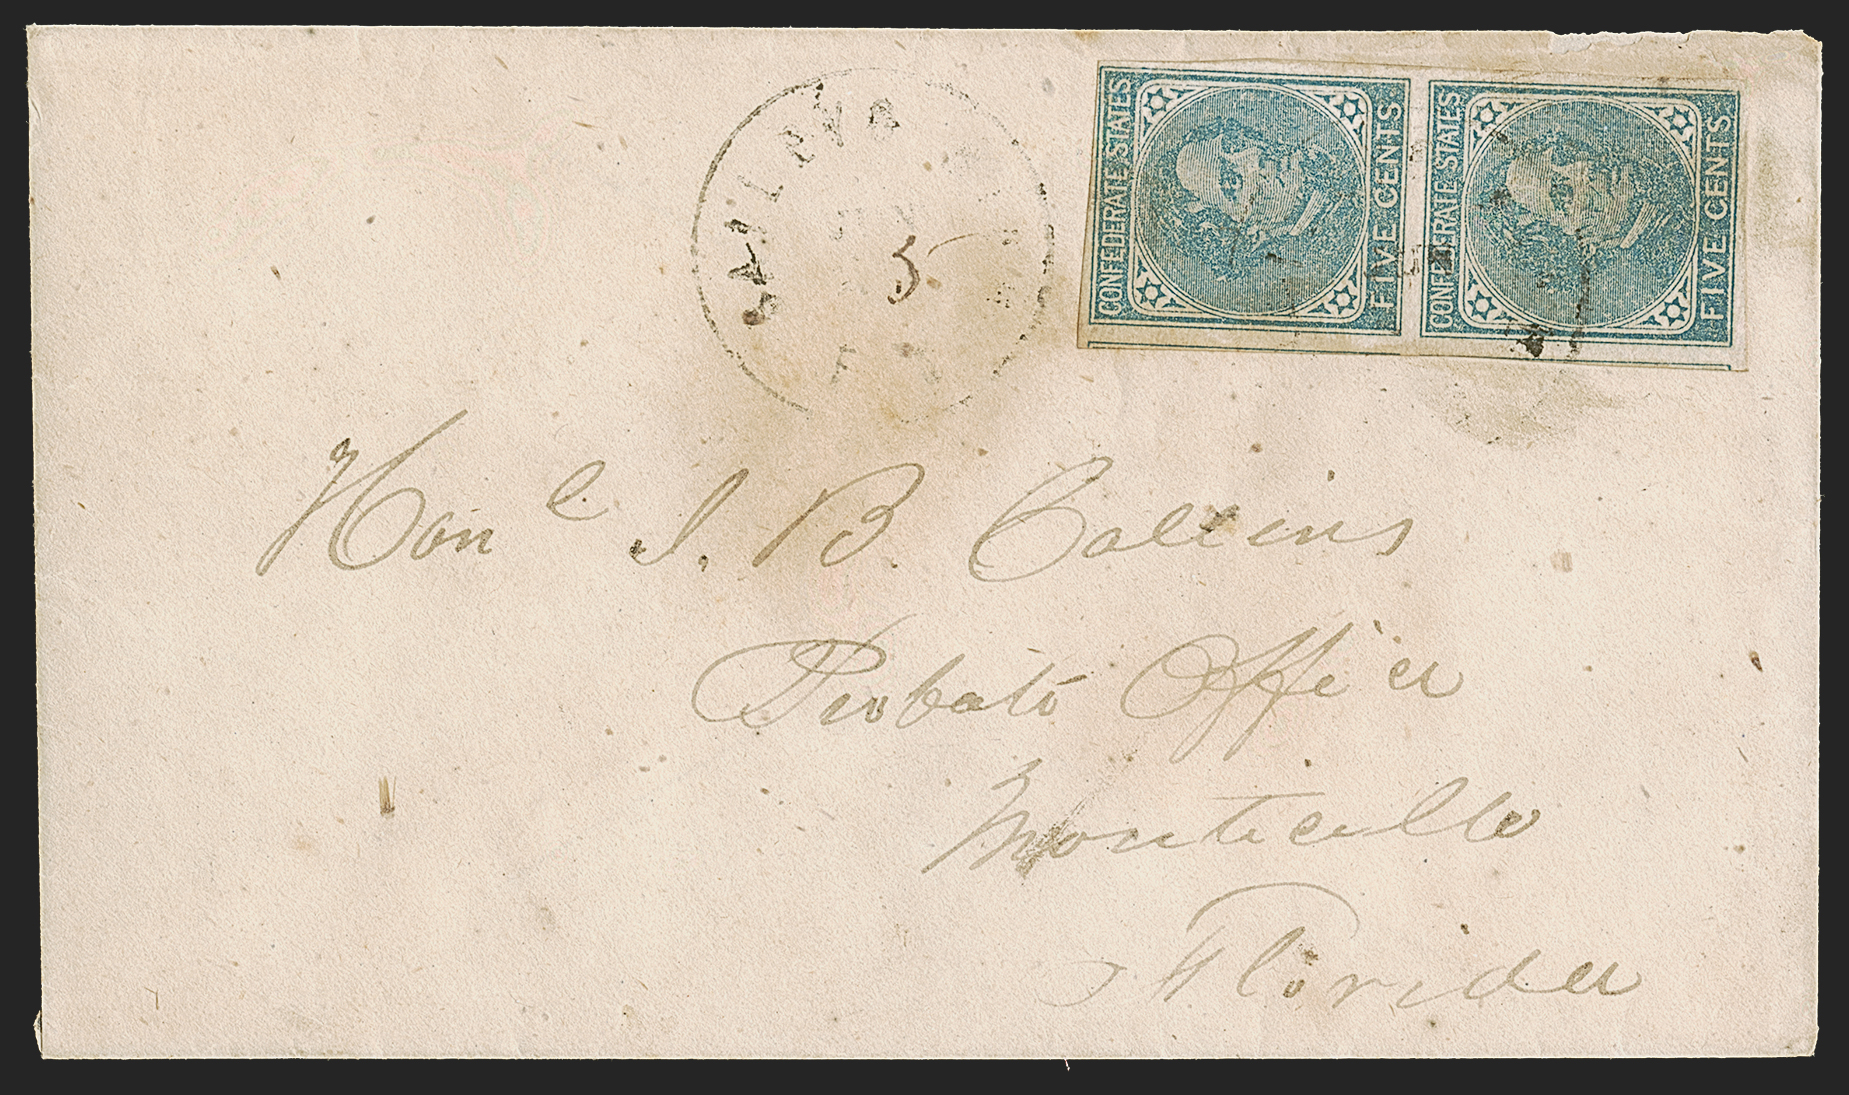 CONFEDERATE STATES
FIVE CENTS
CONFEDERATE STATES
FIVE CENTS
5
Hon.l J. B. Collins
Probate Office
Monticello
Florida